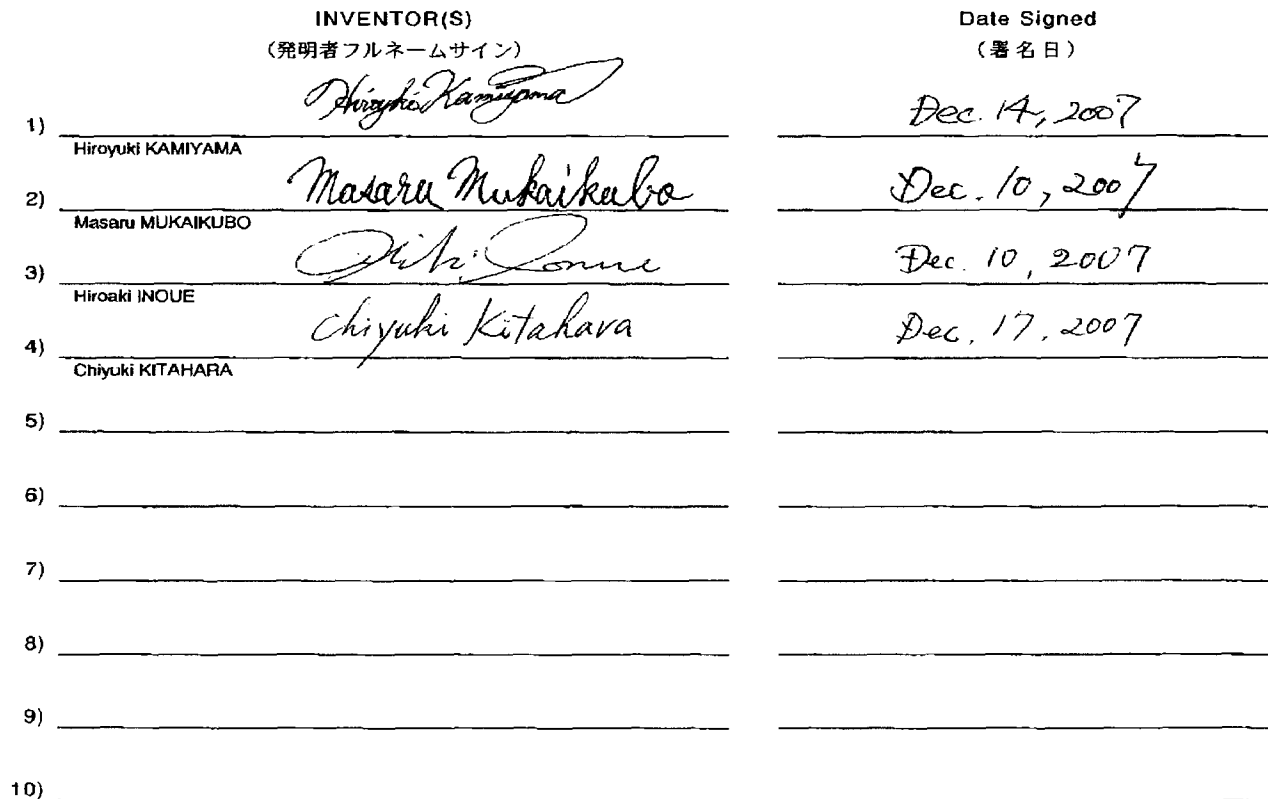 INVENTOR(S) Date Signed
(発明者フルネームサイン) (署名日)
1) Hiroyuki Kamiyama Dec. 14, 2007
Hiroyuki KAMIYAMA
2) Masaru Mukaikubo Dec. 10, 2007
Masaru MUKAIKUBO
3) Dec. 10, 2007
Hiroaki INOUE
4) Chiyuki Kitahara Dec. 17, 2007
Chiyuki KITAHARA
5)
6)
7)
8)
9)
10)